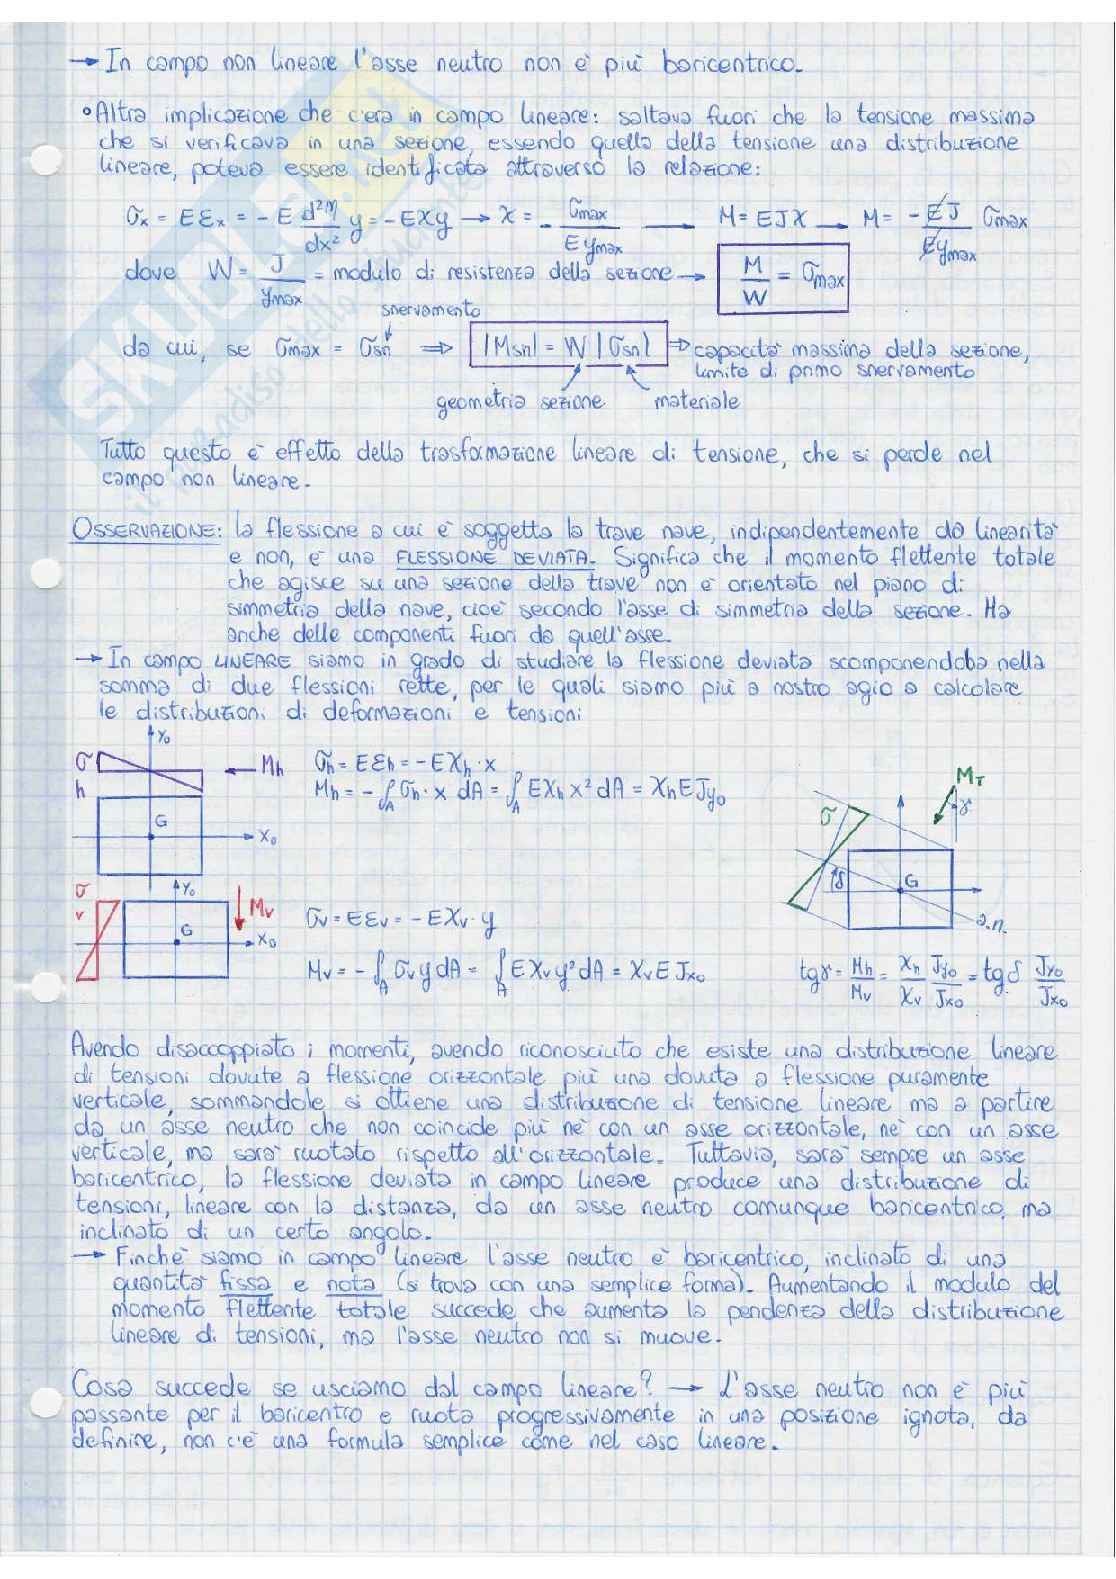 → In campo non lineare l'asse neutro non è più baricentrico.
• Altra implicazione che c'era in campo lineare: saltava fuori che la tensione massima
che si verificava in una sezione, essendo quella della tensione una distribuzione
lineare, poteva essere identificata attraverso la relazione:
σx = Eεx = -E d²η/dx² y = -Eχy → χ = - σmax/E ymax → M = EJχ → M = - EJ/E ymax σmax
dove W = J/ymax = modulo di resistenza della sezione → M/W = σmax
snervamento
da cui, se σmax = σsn ⇒ |Msn| = W |σsn| ⇒ capacità massima della sezione,
limite di primo snervamento
geometria sezione materiale
Tutto questo è effetto della trasformazione lineare di tensione, che si perde nel
campo non lineare.
OSSERVAZIONE: la flessione a cui è soggetta la trave nave, indipendentemente da linearità
e non, è una FLESSIONE DEVIATA. Significa che il momento flettente totale
che agisce su una sezione della trave non è orientato nel piano di
simmetria della nave, cioè secondo l'asse di simmetria della sezione. Ha
anche delle componenti fuori da quell'asse.
→ In campo LINEARE siamo in grado di studiare la flessione deviata scomponendola nella
somma di due flessioni rette, per le quali siamo più a nostro agio a calcolare
le distribuzioni di deformazioni e tensioni
σ h
Y₀
Mh
G
X₀
σh = Eεh = -Eχh · x
Mh = -∫A σh · x dA = ∫A Eχh x² dA = χh E Jy₀
σ v
Y₀
Mv
G
X₀
σv = Eεv = -Eχv · y
Mv = -∫A σv y dA = ∫A Eχv y² dA = χv E Jx₀
MT
γ
σ
δ
G
a.n.
tgγ = Mh/Mv = χh/χv Jy₀/Jx₀ = tgδ Jy₀/Jx₀
Avendo disaccoppiato i momenti, avendo riconosciuto che esiste una distribuzione lineare
di tensioni dovute a flessione orizzontale più una dovuta a flessione puramente
verticale, sommandole si ottiene una distribuzione di tensione lineare ma a partire
da un asse neutro che non coincide più nè con un asse orizzontale, nè con un asse
verticale, ma sarà ruotato rispetto all'orizzontale. Tuttavia, sarà sempre un asse
baricentrico, la flessione deviata in campo lineare produce una distribuzione di
tensioni, lineare con la distanza, da un asse neutro comunque baricentrico, ma
inclinato di un certo angolo.
→ Finchè siamo in campo lineare l'asse neutro è baricentrico, inclinato di una
quantità fissa e nota (si trova con una semplice forma). Aumentando il modulo del
momento flettente totale succede che aumenta la pendenza della distribuzione
lineare di tensioni, ma l'asse neutro non si muove.
Cosa succede se usciamo dal campo lineare? → L'asse neutro non è più
passante per il baricentro e ruota progressivamente in una posizione ignota, da
definire, non c'è una formula semplice come nel caso lineare.